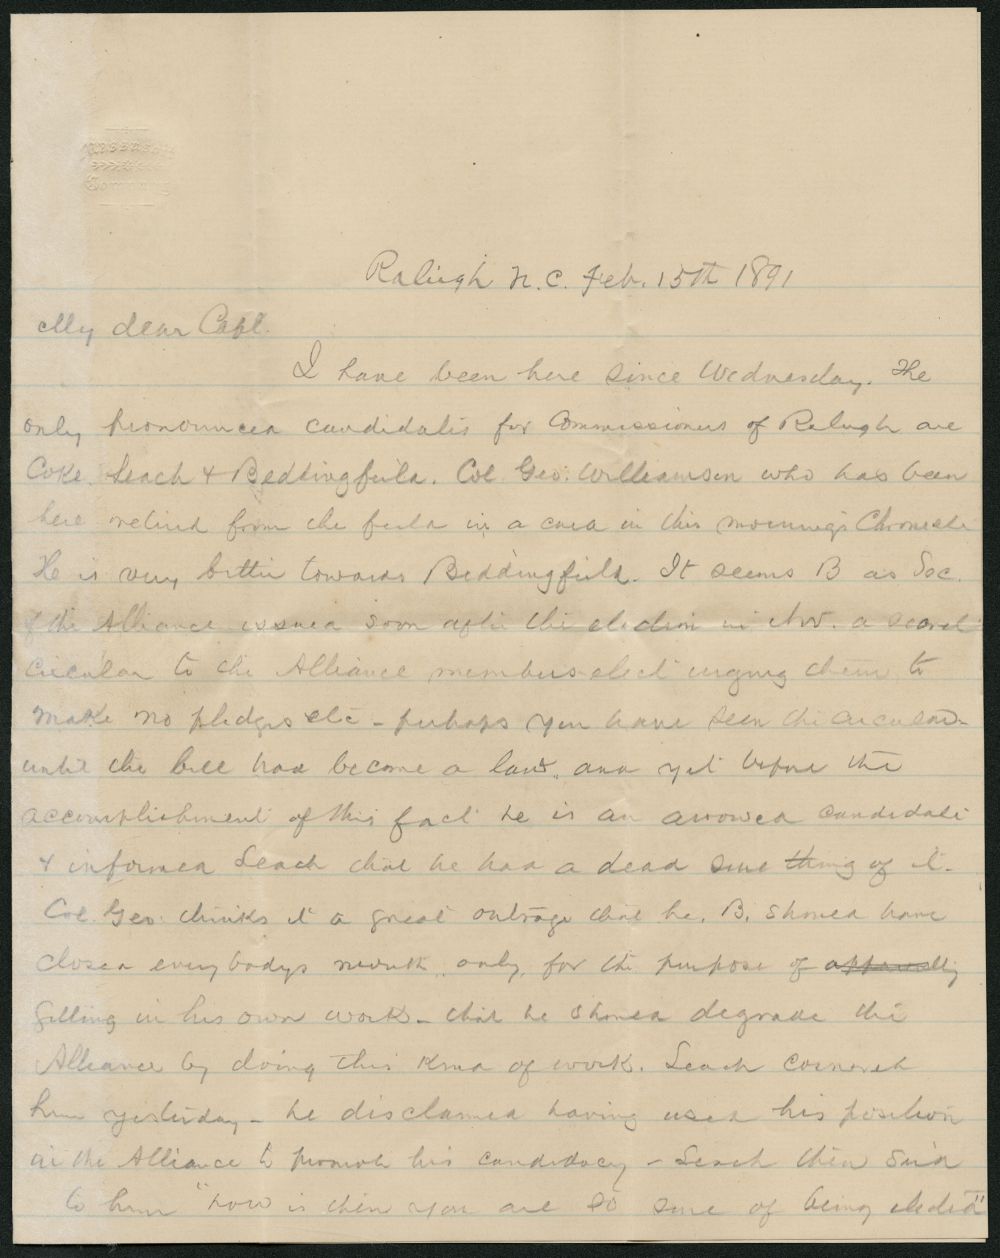 Massasoit
Company
Raleigh N.C. Feb. 15th 1891
My dear Capt.
I have been here since Wednesday. The
only pronounced candidates for Commissioners of Raleigh are
Coke. Leach & Beddingfield. Col. Geo. Williamson who has been
here retired from the field in a card in this morning's Chronicle
He is very bitter towards Beddingfield. It seems B as Sec.
of the Alliance issued soon after the election in Nov. a secret
circular to the Alliance members-elect urging them to
make no pledges etc - perhaps you have seen the circular -
until the bill had become a law, and yet before the
accomplishment of this fact he is an avowed candidate
& informed Leach that he had a dead sure thing of it.
Col. Geo. thinks it a great outrage that he, B, should have
closed everybodys mouth, only, for the purpose of
getting in his own work - that he should degrade the
Alliance by doing this kind of work. Leach cornered
him yesterday - he disclaimed having used his position
in the Alliance to promote his candidacy - Leach then said
to him "how is then you are so sure of being elected"